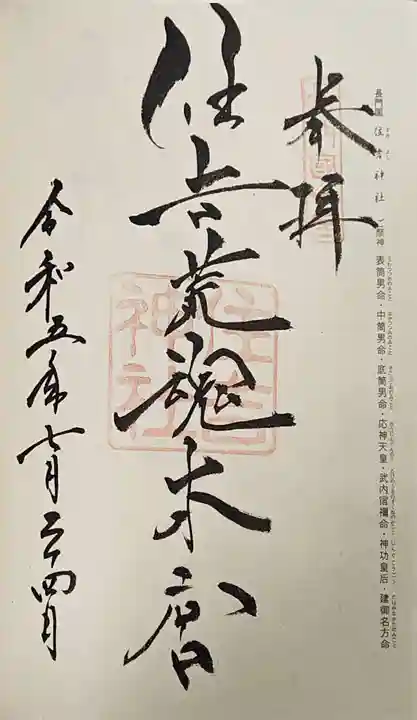 長門国 住吉神社 ご祭神 表筒男命・中筒男命・底筒男命・応神天皇・武内宿禰命・神功皇后・建御名方命
奉拝
住吉荒魂本宮
住吉神社
令和五年七月二十四日